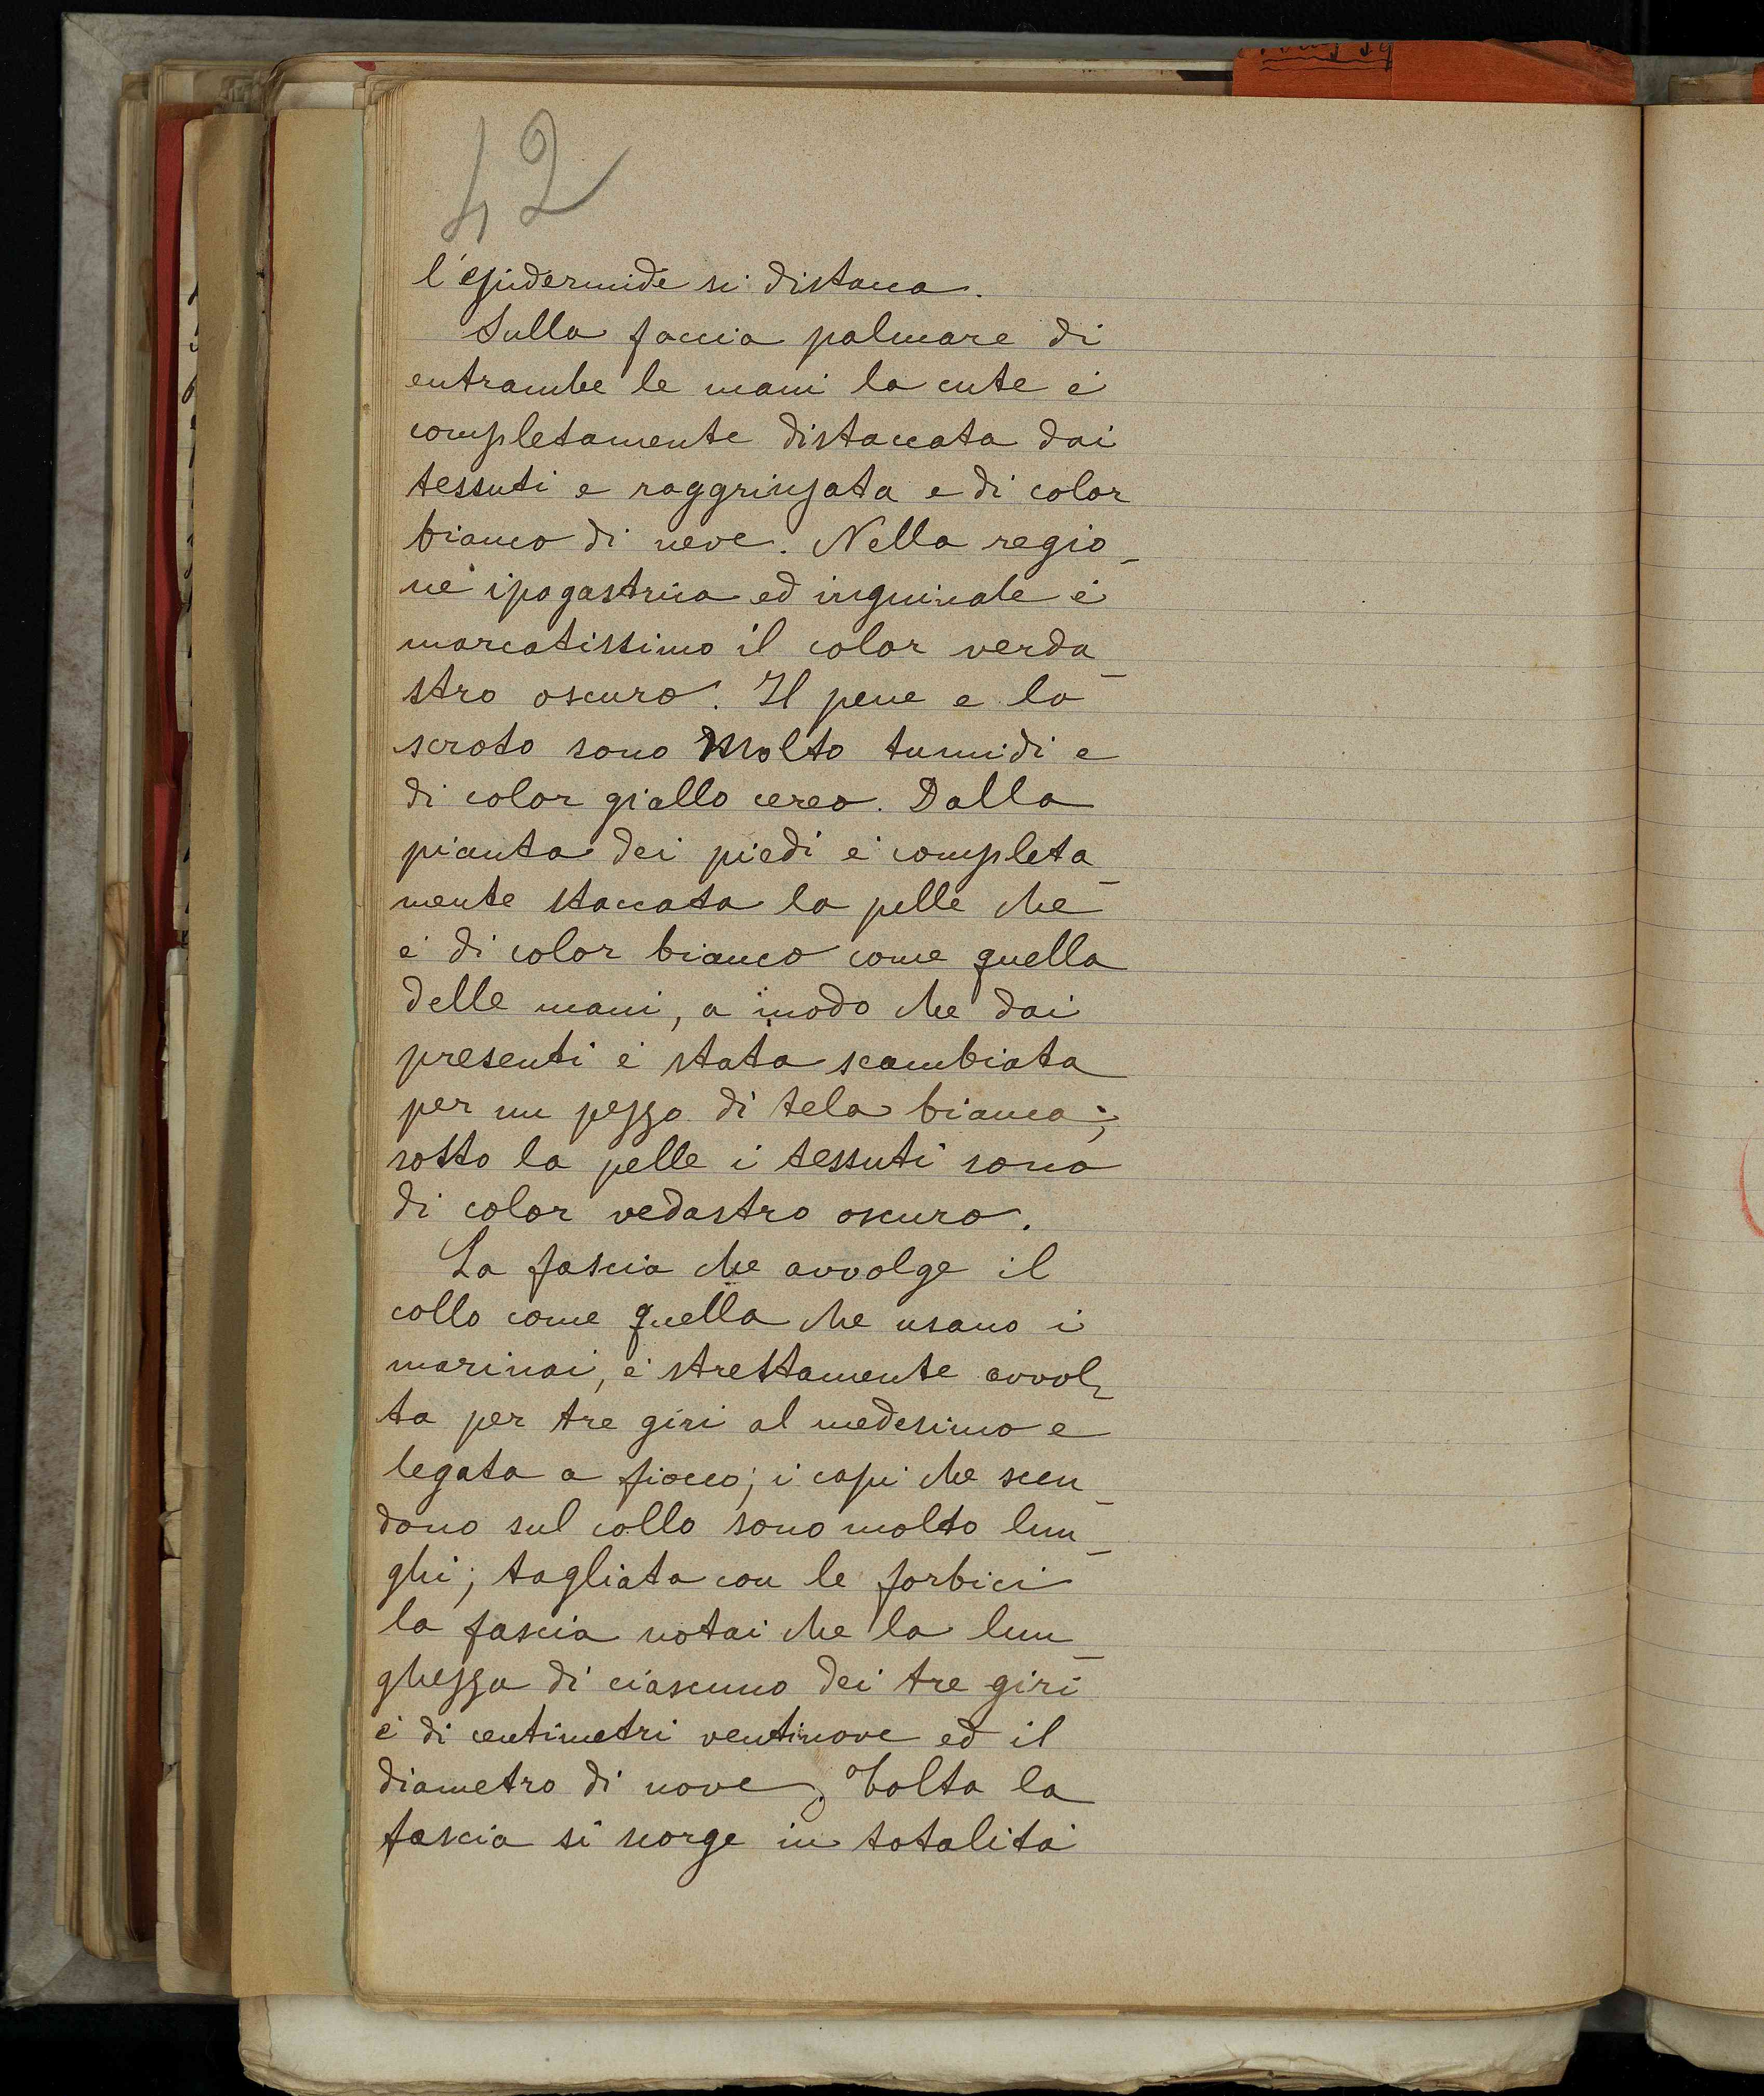 42
l'epidermide si distacca.
Sulla faccia palmare di
entrambe le mani la cute è
completamente distaccata dai
tessuti e raggrinzata e di color
bianco di neve. Nella regio_
ne ipogastrica ed inguinale è
marcatissimo il color verda_
stro oscuro. Il pene e lo
scroto sono molto tumidi e
di color giallo cereo. Dalla
pianta dei piedi è completa_
mente staccata la pelle che
è di color bianco come quella
delle mani, a modo che dai
presenti è stata scambiata
per un pezzo di tela bianca;
sotto la pelle i tessuti sono
di color vedastro oscuro.
La fascia che avvolge il
collo come quella che usano i
marinai, è strettamente avvol_
ta per tre giri al medesimo e
legata a fiocco; i capi che scen_
dono sul collo sono molto lun_
ghi; tagliata con le forbici
la fascia notai che la lun_
ghezza di ciascuno dei tre giri
è di centimetri ventinove ed il
diametro di nove. Tolta la
fascia si scorge in totalità